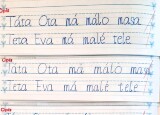 Opiš
Táta Ota má málo masa
Teta Eva má malé tele
Opiš
Táta Ota má málo masa
Teta Eva má malé tele
Opiš